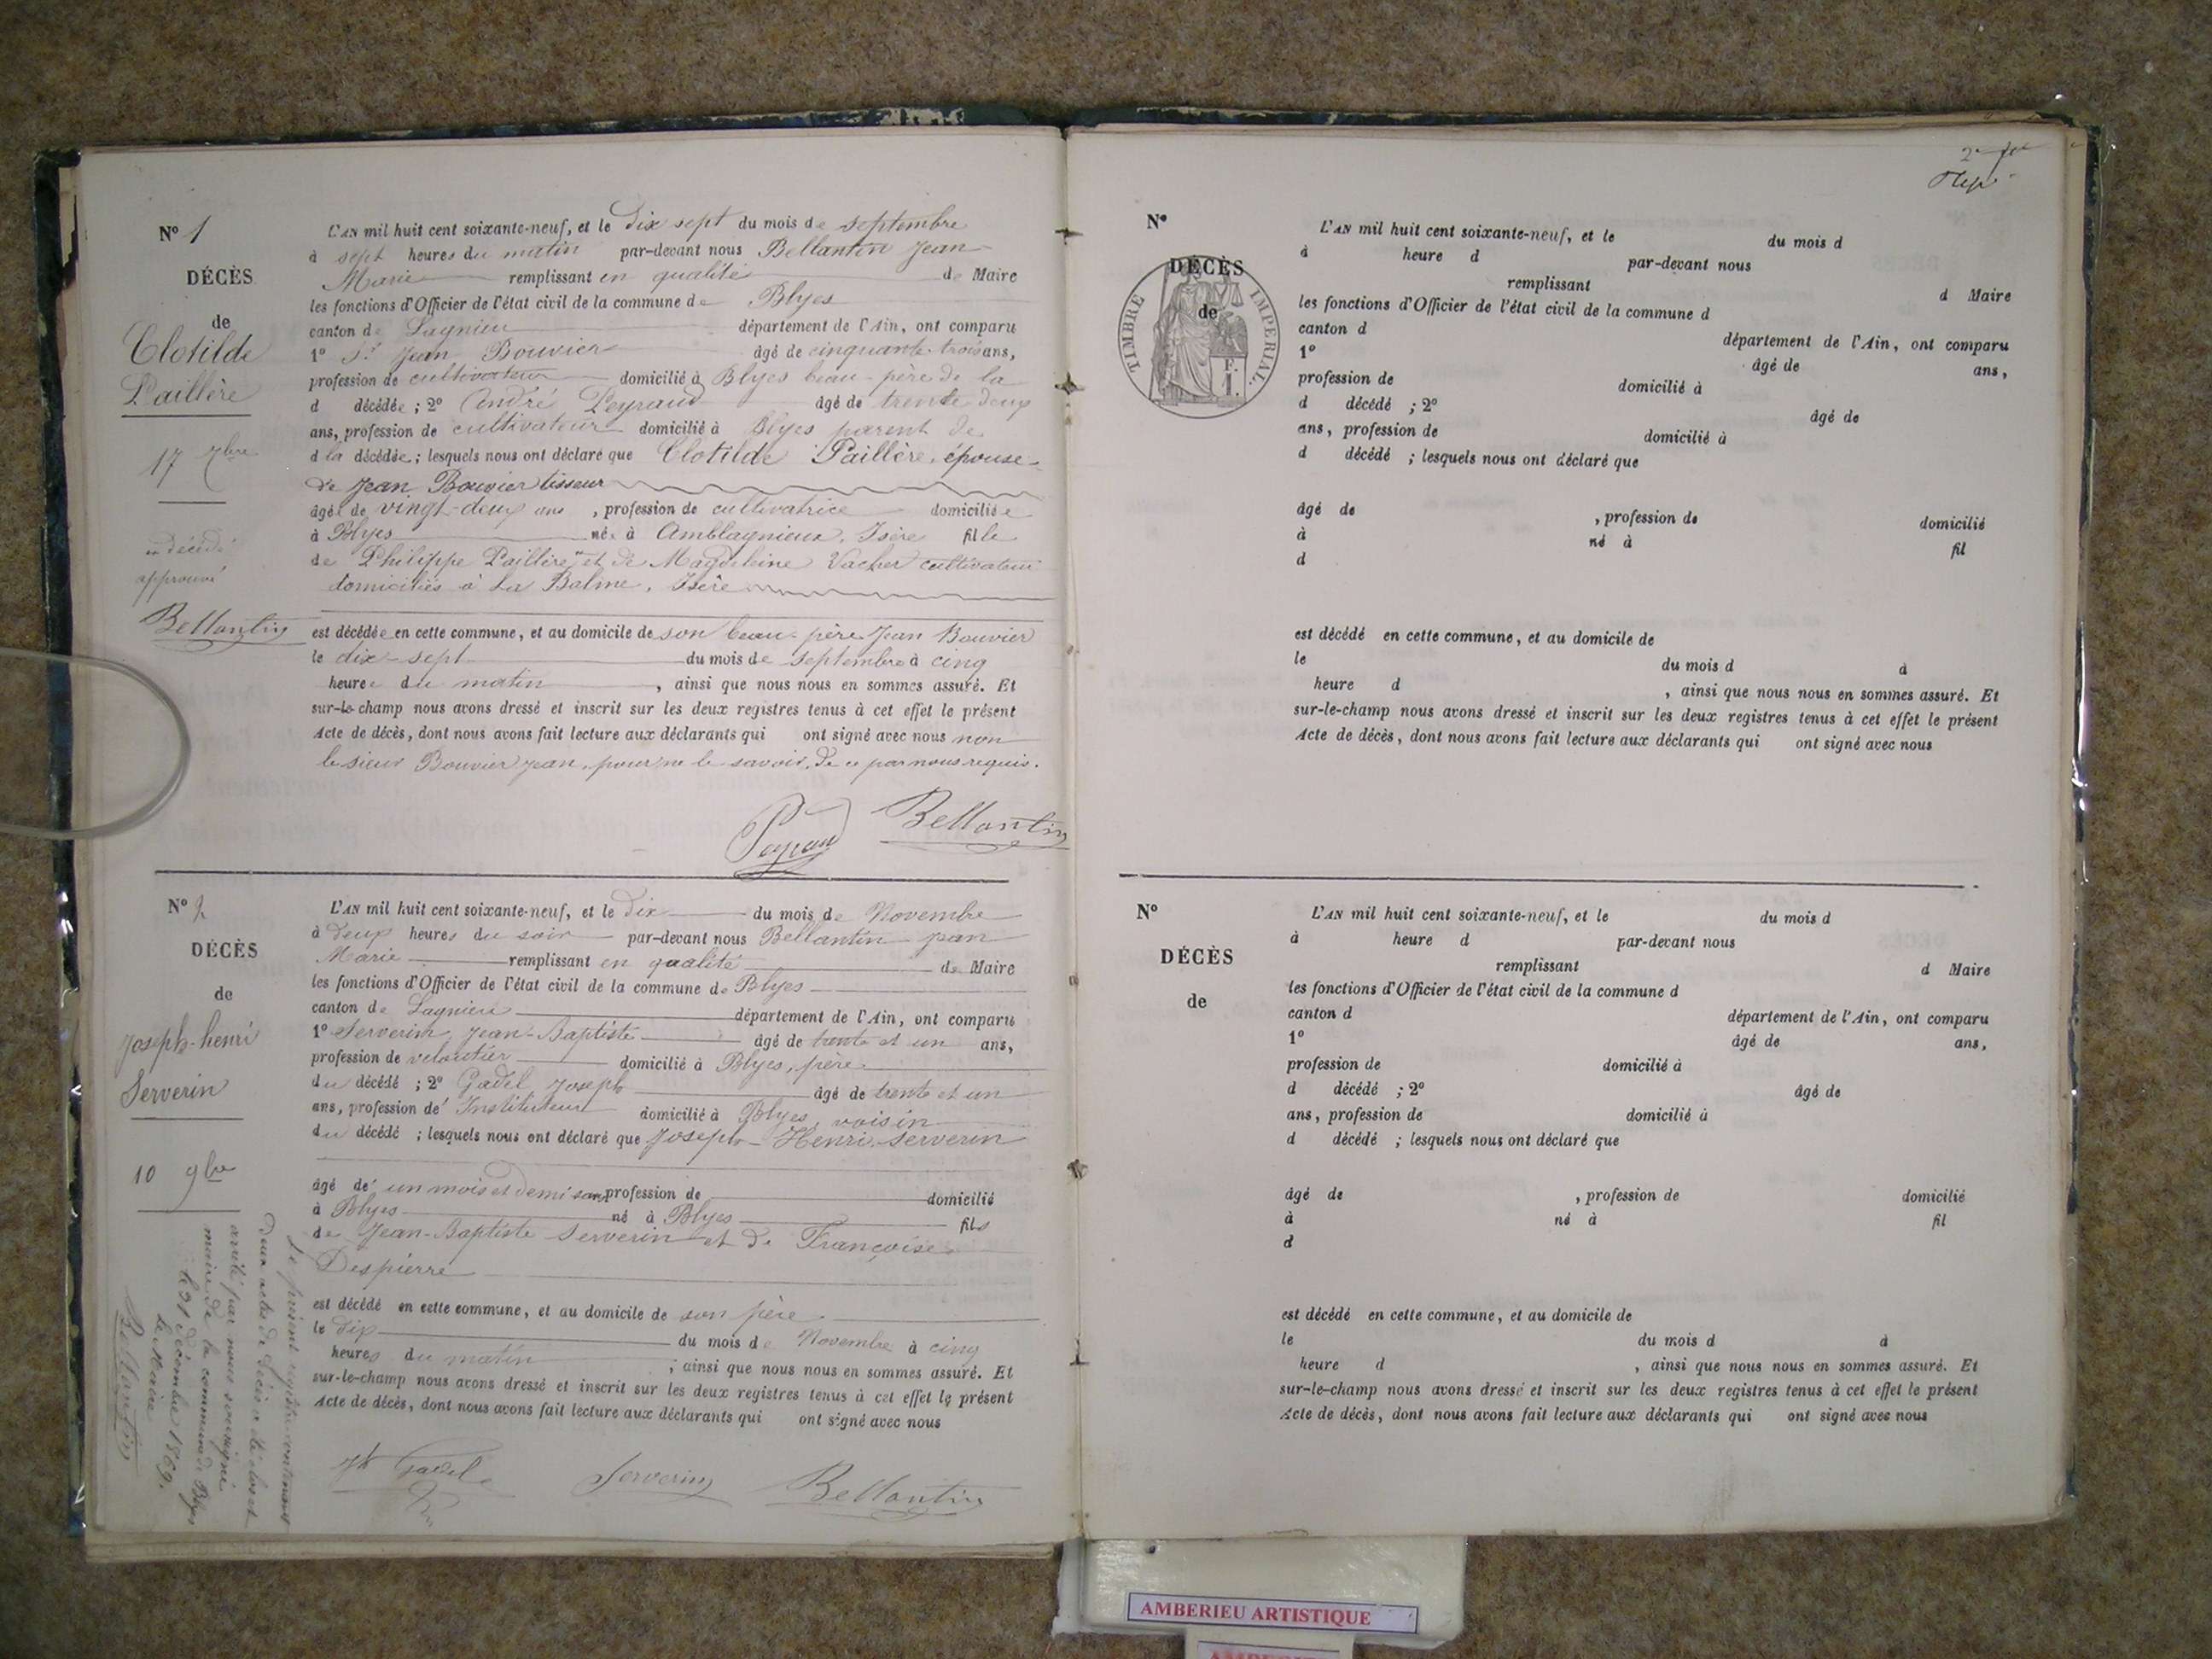 N° 1
DÉCÈS
de
Clotilde
Paillère
17 7bre
approuvé
Bellantin
L'AN mil huit cent soixante-neuf, et le dix sept du mois de septembre
à sept heures du matin par-devant nous Bellantin Jean
Marie remplissant en qualité de Maire
les fonctions d'Officier de l'état civil de la commune de Blyes
canton de Lagnieu département de l'Ain, ont comparu
1° Sr Jean Bouvier âgé de cinquante-trois ans,
profession de cultivateur domicilié à Blyes beau-père de la
d décédée ; 2° André Peyraud âgé de trente deux
ans, profession de cultivateur domicilié à Blyes parent de
d la décédée ; lesquels nous ont déclaré que Clotilde Paillère, épouse
de Jean Bouvier tisseur
âgée de vingt-deux ans , profession de cultivatrice domiciliée
à Blyes née à Amblagnieux, Isère fille
de Philippe Paillère et de Magdeleine Vacher cultivateurs
domiciliés à La Balme, Isère
est décédée en cette commune, et au domicile de son beau-père Jean Bouvier
le dix-sept du mois de septembre à cinq
heures du matin , ainsi que nous nous en sommes assuré. Et
sur-le-champ nous avons dressé et inscrit sur les deux registres tenus à cet effet le présent
Acte de décès, dont nous avons fait lecture aux déclarants qui ont signé avec nous non
le sieur Bouvier Jean, pour ne le savoir, de ce par nous requis.
Bellantin
N° 2
DÉCÈS
de
Joseph-henri
Serverin
10 9bre
L'AN mil huit cent soixante-neuf, et le dix du mois de Novembre
à deux heures du soir par-devant nous Bellantin Jean
Marie remplissant en qualité de Maire
les fonctions d'Officier de l'état civil de la commune de Blyes
canton de Lagnieu département de l'Ain, ont comparu
1° Serverin, Jean-Baptiste âgé de trente et un ans,
profession de veloutier domicilié à Blyes, père
du décédé ; 2° Gadel Joseph âgé de trente et un
ans, profession de Instituteur domicilié à Blyes voisin
du décédé ; lesquels nous ont déclaré que Joseph-Henri Serverin
âgé de un mois et demi profession de domicilié
à Blyes né à Blyes fils
de Jean-Baptiste Serverin et de Françoise
Despierre
est décédé en cette commune, et au domicile de son père
le dix du mois de Novembre à cinq
heures du matin , ainsi que nous nous en sommes assuré. Et
sur-le-champ nous avons dressé et inscrit sur les deux registres tenus à cet effet le présent
Acte de décès, dont nous avons fait lecture aux déclarants qui ont signé avec nous
Jh Gadel Serverin Bellantin
Le présent registre contenant
deux actes de décès a été clos et
arrêté par nous soussigné
maire de la commune de Blyes
le 31 décembre 1869.
Le Maire
Bellantin
N°
DÉCÈS
de
TIMBRE IMPÉRIAL.
F.
1.
L'AN mil huit cent soixante-neuf, et le du mois d
à heure d par-devant nous
remplissant d Maire
les fonctions d'Officier de l'état civil de la commune d
canton d département de l'Ain, ont comparu
1° âgé de ans,
profession de domicilié à
d décédé ; 2° âgé de
ans, profession de domicilié à
d décédé ; lesquels nous ont déclaré que
âgé de , profession de domicilié
à né à fil
d
est décédé en cette commune, et au domicile de
le du mois d à
heure d , ainsi que nous nous en sommes assuré. Et
sur-le-champ nous avons dressé et inscrit sur les deux registres tenus à cet effet le présent
Acte de décès, dont nous avons fait lecture aux déclarants qui ont signé avec nous
N°
DÉCÈS
de
L'AN mil huit cent soixante-neuf, et le du mois d
à heure d par-devant nous
remplissant d Maire
les fonctions d'Officier de l'état civil de la commune d
canton d département de l'Ain, ont comparu
1° âgé de ans,
profession de domicilié à
d décédé ; 2° âgé de
ans, profession de domicilié à
d décédé ; lesquels nous ont déclaré que
âgé de , profession de domicilié
à né à fil
d
est décédé en cette commune, et au domicile de
le du mois d à
heure d , ainsi que nous nous en sommes assuré. Et
sur-le-champ nous avons dressé et inscrit sur les deux registres tenus à cet effet le présent
Acte de décès, dont nous avons fait lecture aux déclarants qui ont signé avec nous
AMBERIEU ARTISTIQUE